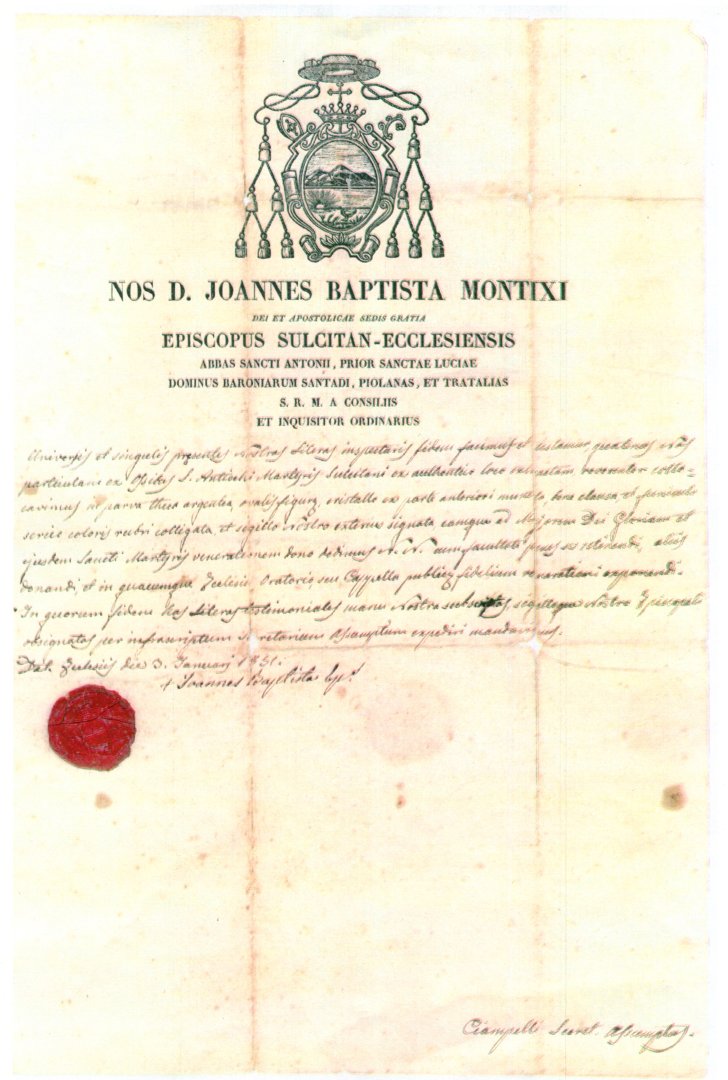 NOS D. JOANNES BAPTISTA MONTIXI
DEI ET APOSTOLICAE SEDIS GRATIA
EPISCOPUS SULCITAN-ECCLESIENSIS
ABBAS SANCTI ANTONII, PRIOR SANCTAE LUCIAE
DOMINUS BARONIARUM SANTADI, PIOLANAS, ET TRATALIAS
S. R. M. A CONSILIIS
ET INQUISITOR ORDINARIUS
Universis et singulis presentes Nostras Literas inspecturis fidem facimus et testamur, quatenus
particulam ex Ossibus S. Antiochi Martyris Sulcitani ex authentico loco extractam reverenter collo-
cavimus in parva theca argentea, ovalis figurę, cristallo ex parte anteriori munita, bene clausa, et funiculo
serico coloris rubri colligata, et sigillo Nostro extenus signata eamque ad Majorem Dei Gloriam et
ejusdem Sancti Martyris venerationem dono dedimus N. N. cum facultate penes se retinendi, aliis
donandi, et in quacumque Ecclesia, Oratorio, seu Cappella publicę fidelium venerationi exponendi.
In quorum fidem has Literas testimoniales manu Nostra subscriptas sigilloque Nostro Episcopali
obsignatas per infrascriptum Secretarium Assumptum expediri mandavimus.
Dat. Ecclesiis die 3. Januarij 1851.
+ Joannes Baptista Ep.s
Ciampelli Secret. Assumptus.